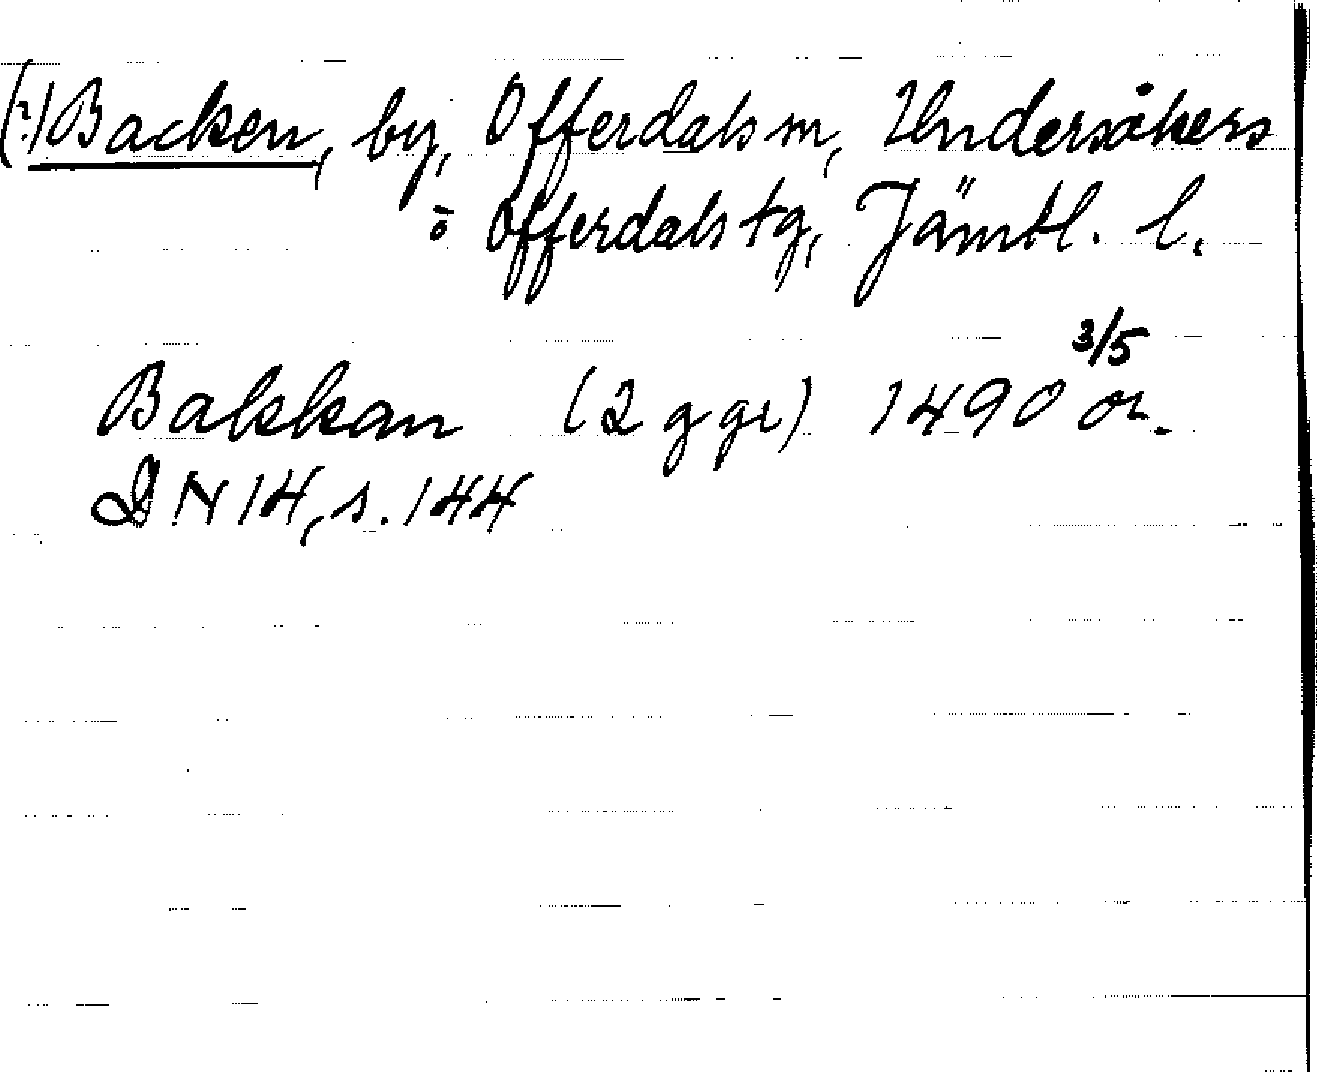 (?) Backen, by, Offerdals sn, Undersåkers
o Offerdals tg, Jämtl. l.
Bakkan (2 ggr) 1490 3/5 or.
DN 14, s. 144